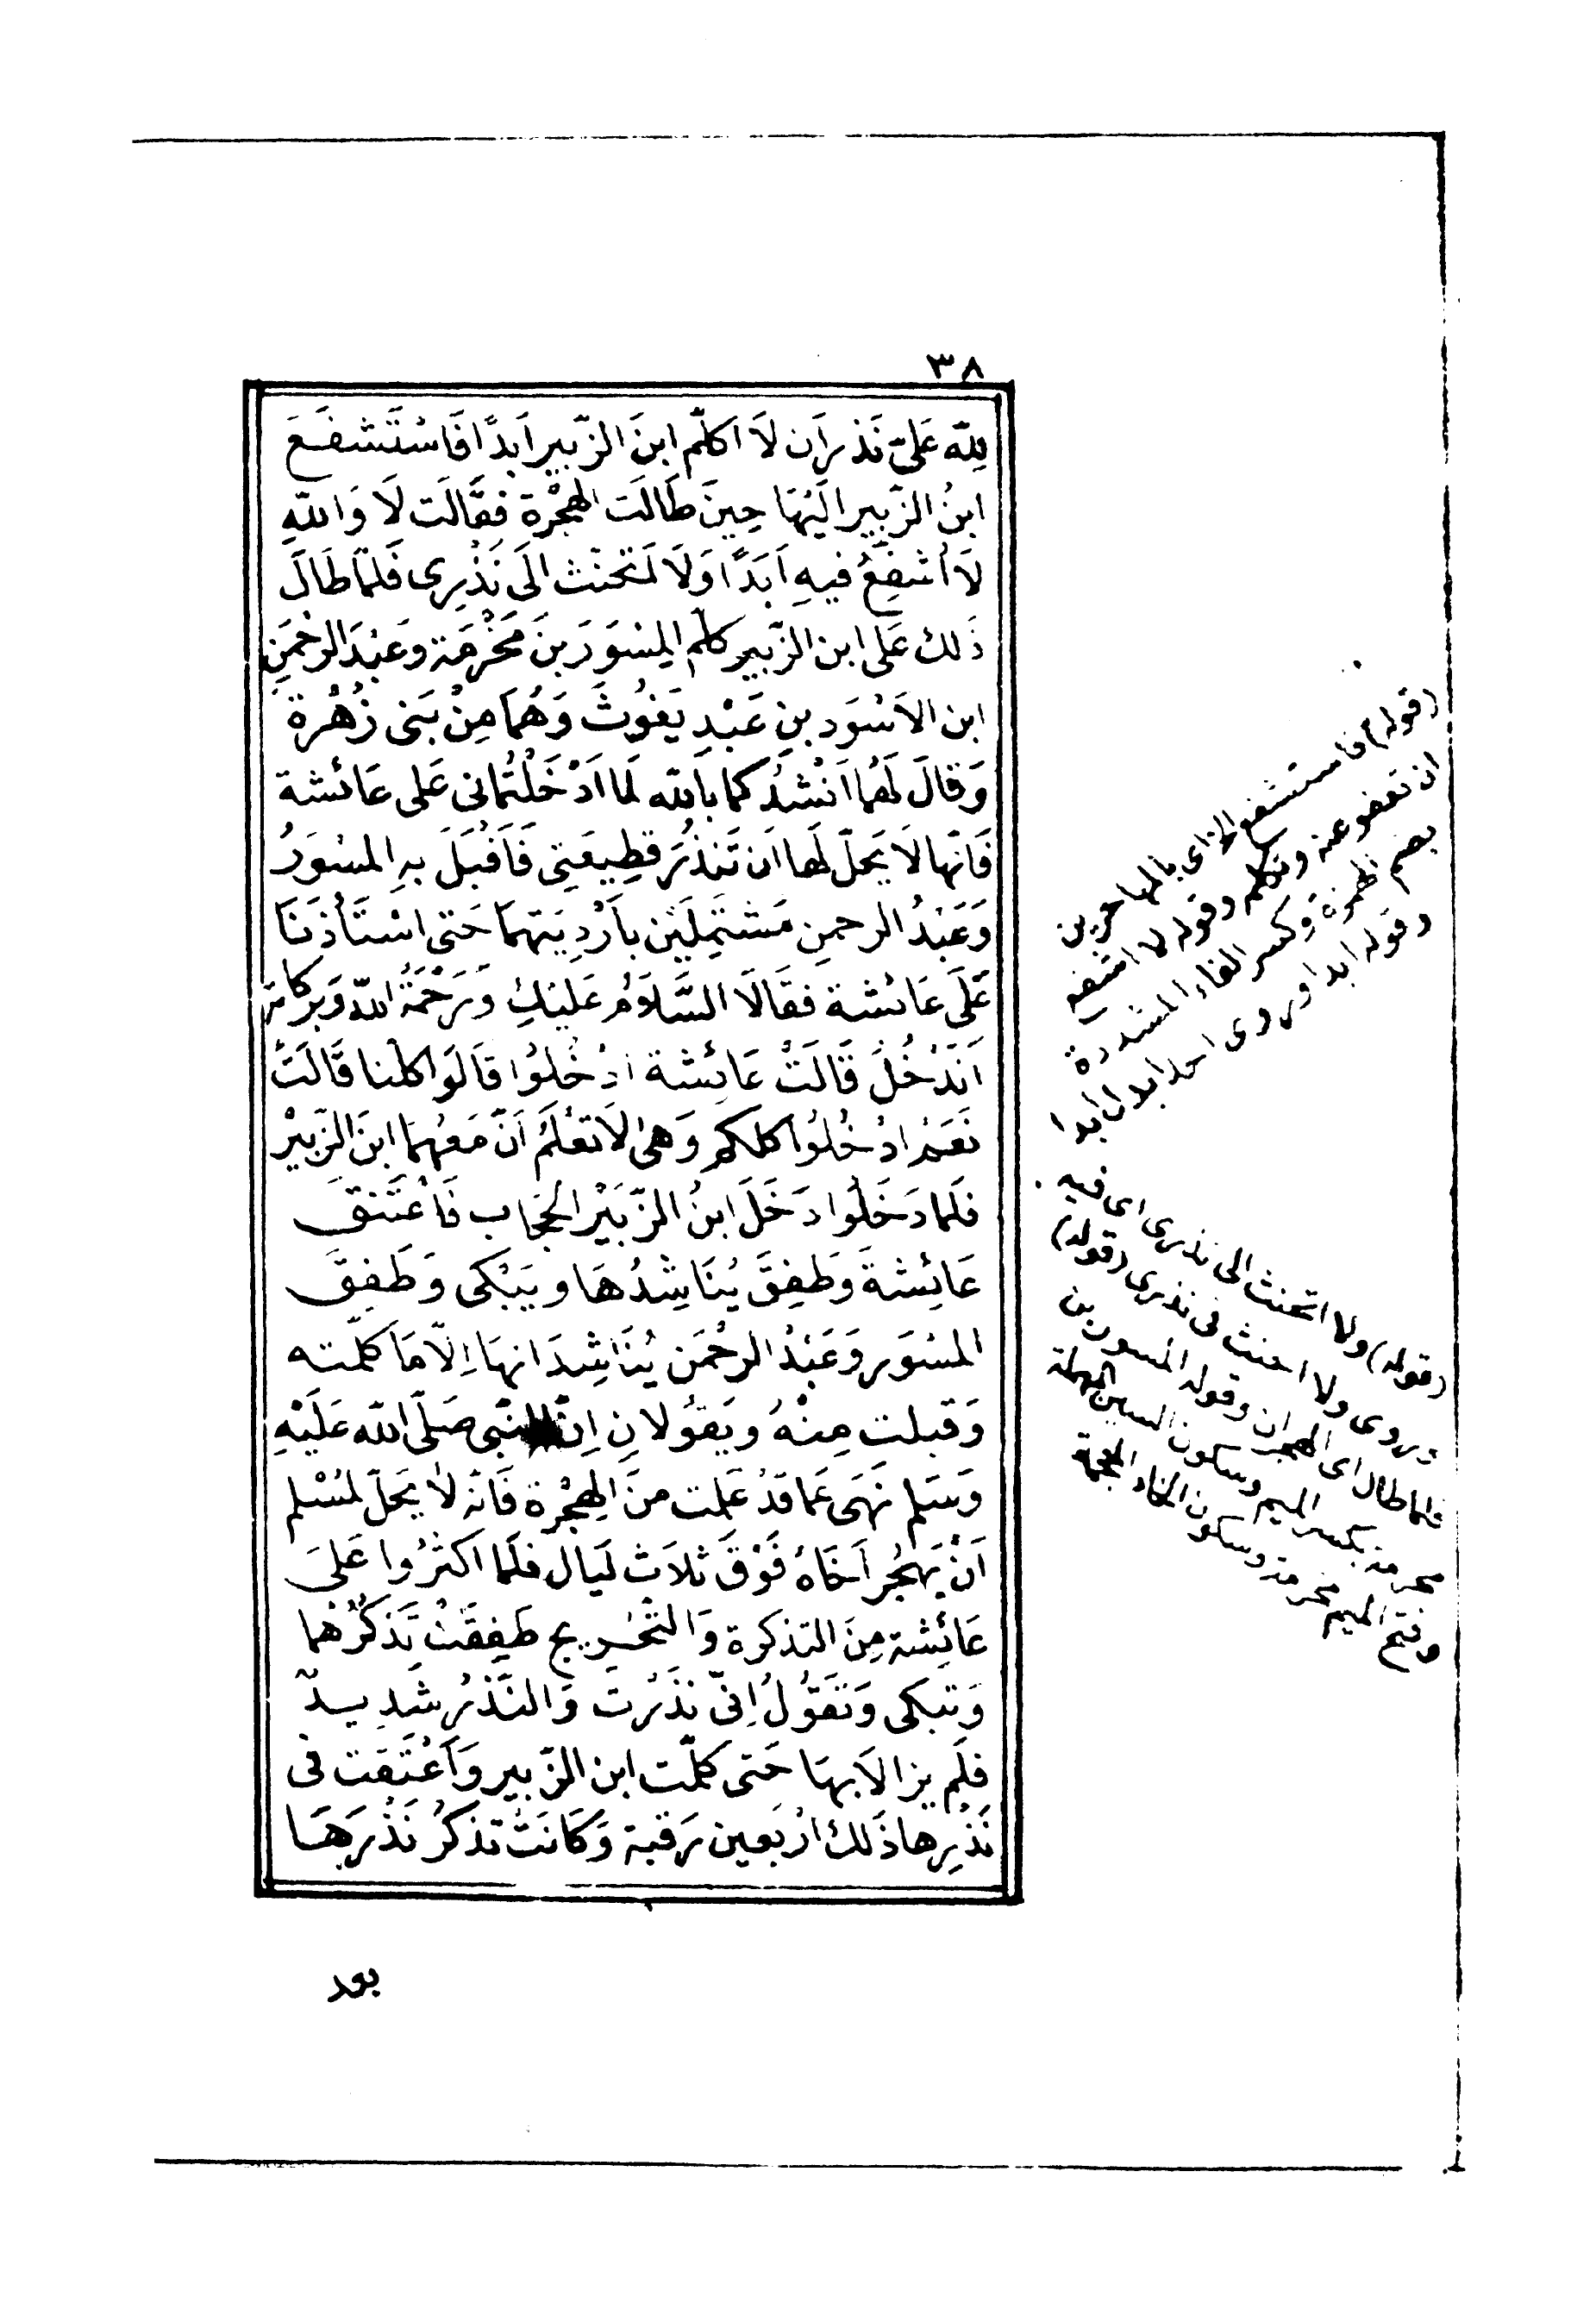 ٣٨
لِلّه عَلىّ نَذر اَن لاَ اكلّم ابنَ الزّبير اَبدًا فَاسْتَشفَعَ
ابنُ الزّبير الَيْهَا حِينَ طَالَت الهِجْرة فقَالَت لَا وَاللّهِ
لَا اُشفِّعُ فيهِ اَبَدًا وَلَا اَتحَنّث الَى نَذْرِى فَلمّا طَالَ
ذَلك عَلى ابن الزّبير كلم المِسْوَرَ بنَ مَخْرَمَة وعَبْدَ الرحْمَنِ
ابن الاَسْوَد بنِ عَبْدِ يَغوُثَ وَهُمَا مِنْ بَنى زُهْرة
وَقالَ لَهُمَا اَنْشُدُكما بِاَللّه لَمَا اَدْخَلْتُمانى عَلى عَائشة
فَانّها لَا يَحلّ لَها اَن تَنذُرَ قطِيعَتِى فَاَقْبَلَ بهِ المسْوَرُ
وَعَبْدُ الرحمنِ مَشتَمِلَيْن بِاَرْدِيَتهمَا حَتى اسْتَأذَنَا
عَلَى عَائشة فقَالَا السَّلَامُ عَليْكِ وَرَحْمَةُ اللّه وَبَركاته
اَنَدْخُلُ قَالَتْ عَائِشة ادْخُلُوا قَالَوا كلنا قَالَتْ
نَعَم ادْخُلُوا كلكم وَهىَ لَا تعْلَمُ اَنّ مَعهُمَا ابنَ الزّبيْر
فلما دَخَلوُا دَخَلَ ابنُ الزّبَيْر الحجَاب فَاعْتَنقَ
عَائِشةَ وَطَفِقَ يُنَاشِدُهَا ويَبْكى وَطَفِقَ
المسْوَر وَعَبْدُ الرحْمَن يُنَاشِدَانهَا اِلّا مَا كلّمته
وَقبلت مِنْهُ ويَقوُلانِ اِنّ النّبى صَلّى اللّه عَلَيْهِ
وَسَلم نَهَى عَما قدْ عَلمت منَ الهِجْرة فَانّه لَا يَحلّ لمُسْلم
اَنْ يَهجُر اَخَاهُ فَوْقَ ثلَاث لَيَال فلَمّا اكثَرُوا عَلىَ
عَائِشة مِنَ التذكرة وَالتّحْريج طَفِقَتْ تَذكُرُهما
وَتبكى وَتَقوُلُ اِنّى نذَرْتَ وَالنّذْرُ شَدِيدٌ
فلَم يزالَا بهَا حَتى كلّمَت ابن الزّبير وَاَعْتَقت فى
نَذْرِها ذَلك ارْبَعين رَقبة وَكَانَتْ تذكُرُ نَذْرَهَا
بعد
(قوله) فاستشفع الزاى بالمهاجرين
ان تعفو عنه وتكلم وقوله لا اشفع
بضم الهمزة وكسر الفاء المشددة
وقوله ابدا وروى احدا بدل ابدا
(قوله) ولا اتحنث الى نذرى اى فيه
وروى ولا احنث فى نذرى (قوله)
فلما طال اى الهجران وقوله المسور بن
مخرمة بكسر الميم وسكون السين المهملة
وفتح الميم مخرمة وسكون الخاء المعجمة